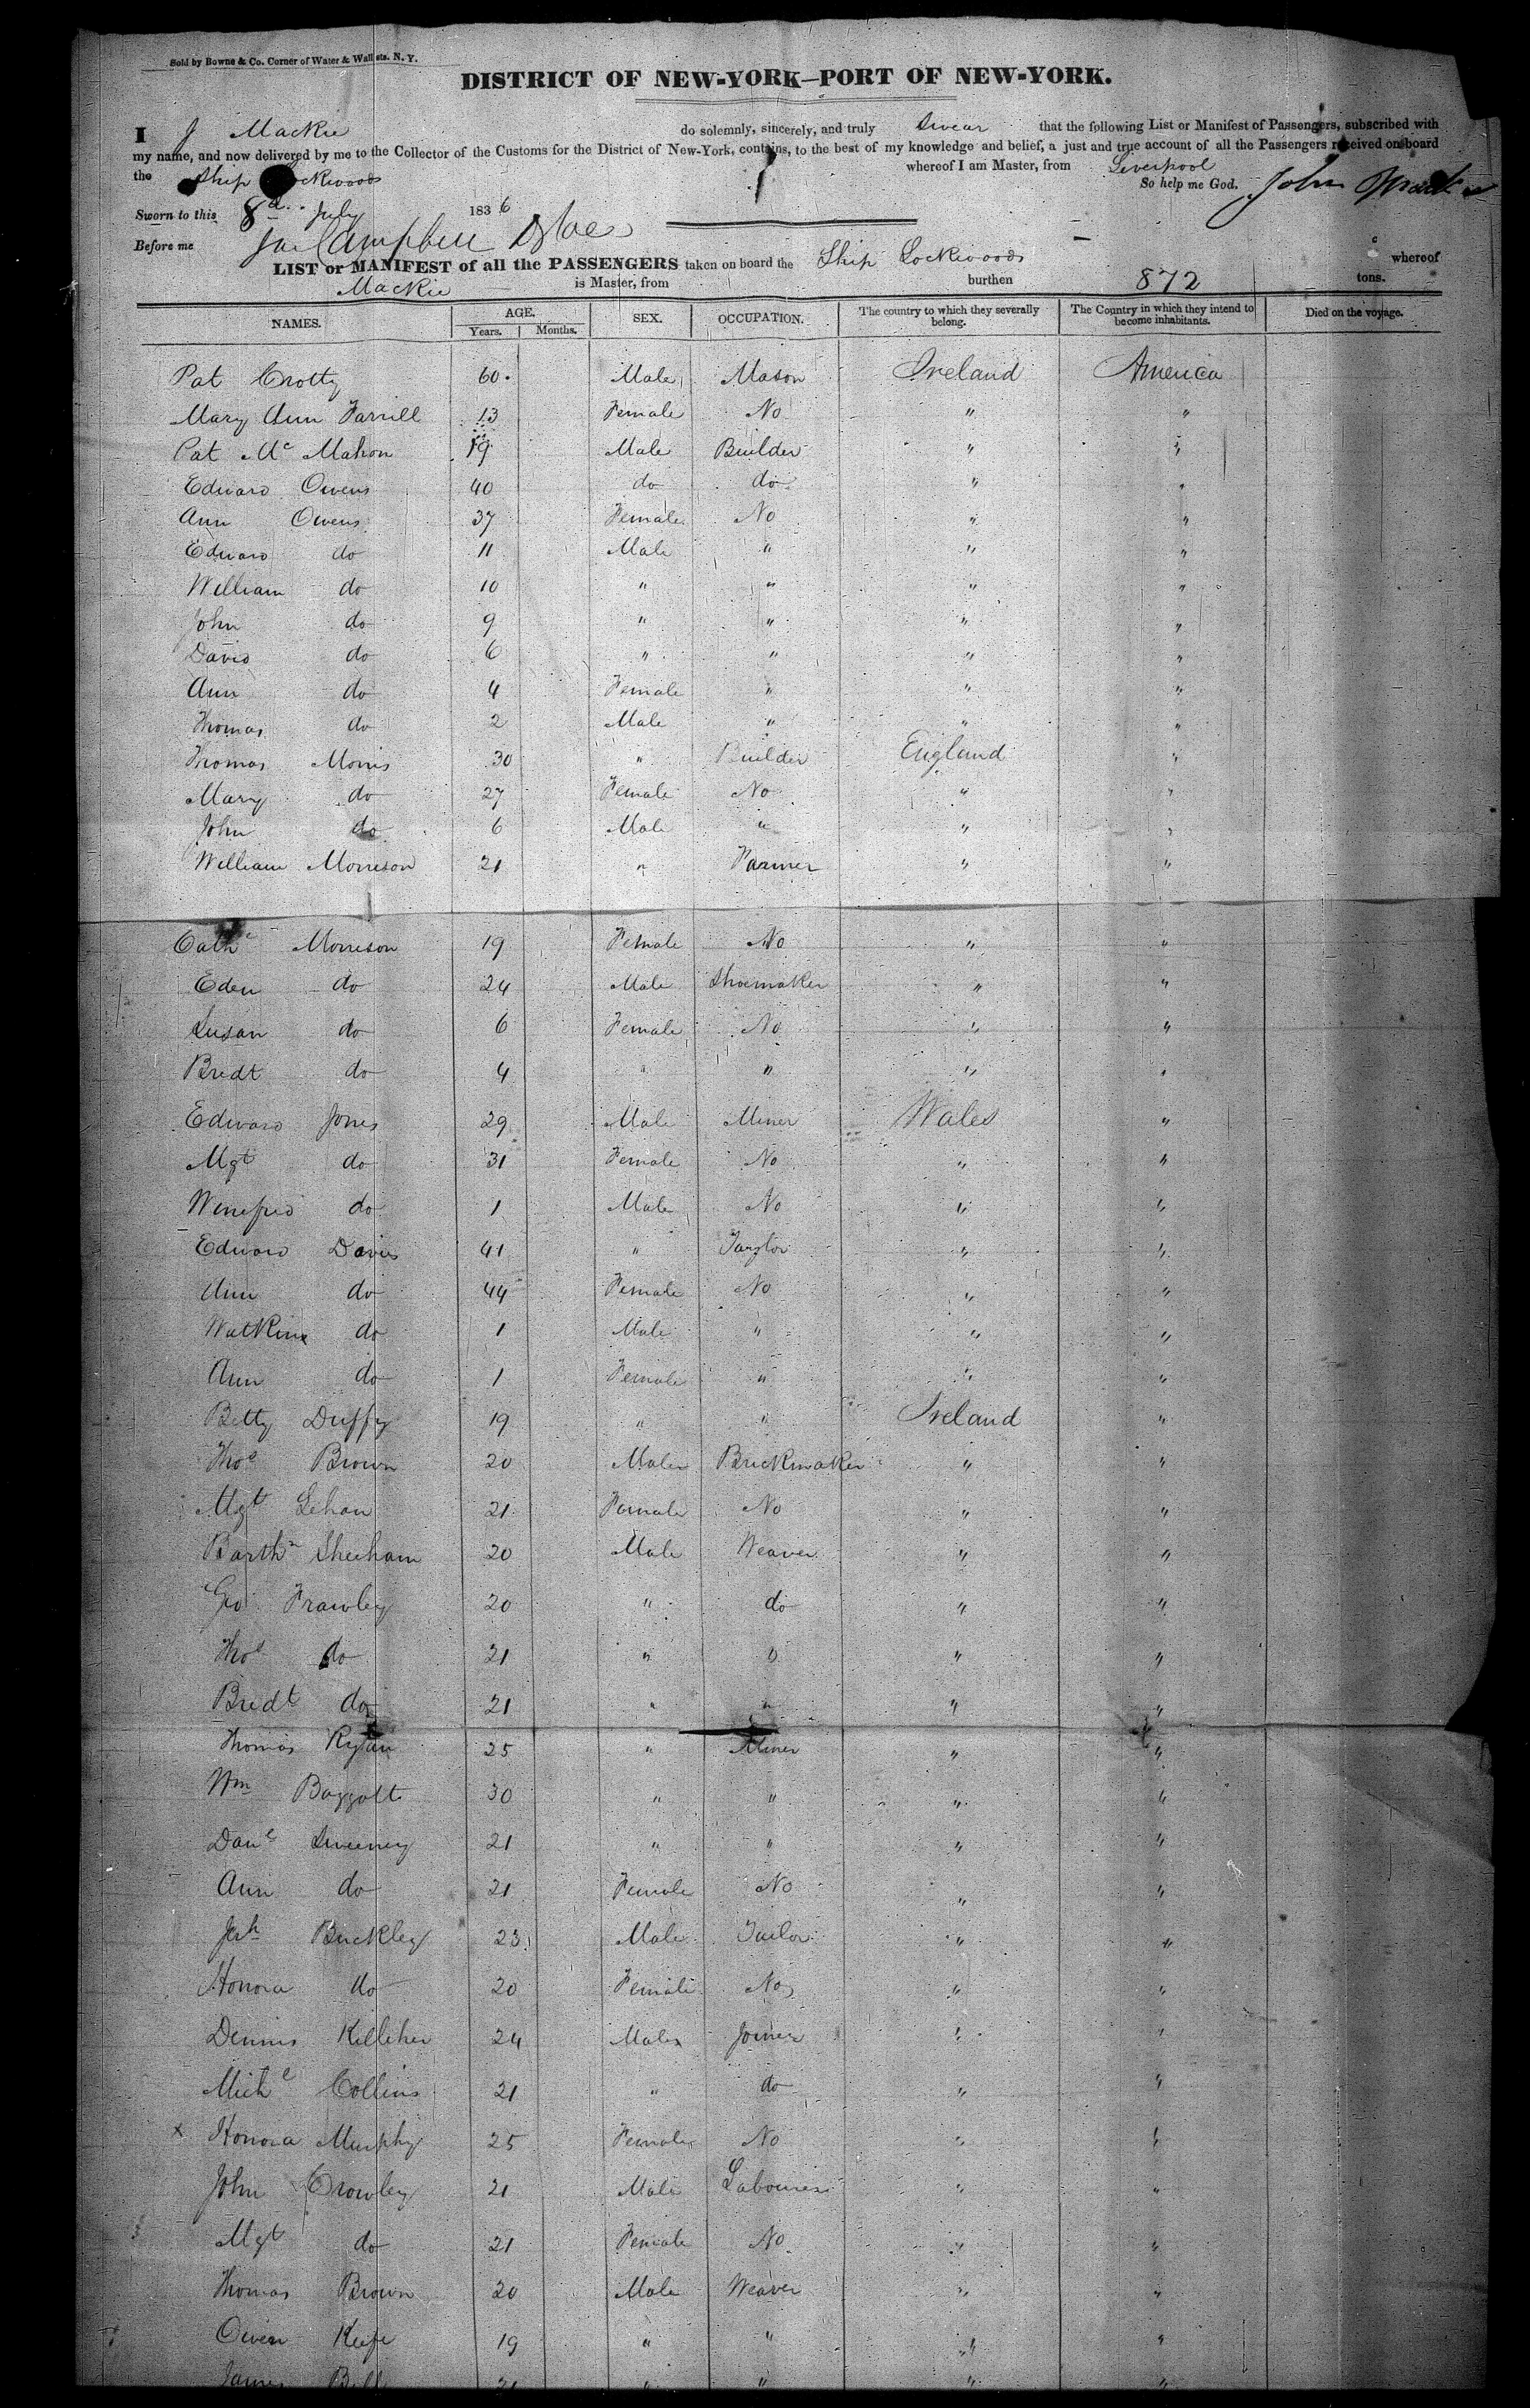 Sold by Bowne & Co. Corner of Water & Wall sts. N. Y.
DISTRICT OF NEW-YORK—PORT OF NEW-YORK.
I J Mackie do solemnly, sincerely, and truly swear that the following List or Manifest of Passengers, subscribed with
my name, and now delivered by me to the Collector of the Customs for the District of New-York, contains, to the best of my knowledge and belief, a just and true account of all the Passengers received on board
the Ship Lockwoods whereof I am Master, from Liverpool
So help me God. John Mackie
Sworn to this 8th July 1836
Before me Campbell
LIST or MANIFEST of all the PASSENGERS taken on board the Ship Lockwoods whereof
Mackie is Master, from burthen 872 tons.
NAMES. AGE. Years. Months. SEX. OCCUPATION. The country to which they severally belong. The Country in which they intend to become inhabitants. Died on the voyage.
Pat Crotty 60 Male Mason Ireland America
Mary Ann Farrill 13 Female No " "
Pat Mc Mahon 19 Male Builder " "
Edward Owens 40 do do " "
Ann Owens 37 Female No " "
Edward do 11 Male " " "
William do 10 " " " "
John do 9 " " " "
David do 6 " " " "
Ann do 4 Female " " "
Thomas do 2 Male " " "
Thomas Morris 30 " Builder England "
Mary do 27 Female No " "
John do 6 Male " " "
William Morreson 21 " Farmer " "
Cathe Morreson 19 Female No " "
Eden do 24 Male Shoemaker " "
Susan do 6 Female No " "
Bredt do 4 " " " "
Edward Jones 29 Male Miner Wales "
Mgt do 31 Female No " "
Winefred do 1 Male No " "
Edward Davies 41 " Taylor " "
Ann do 44 Female No " "
Watkins do 1 Male " " "
Ann do 1 Female " " "
Betty Duffy 19 " " Ireland "
Thos Brown 20 Male Brickmaker " "
Mgt Lehan 21 Female No " "
Barthw Sheeham 20 Male Weaver " "
Geo Frawley 20 " do " "
Thos do 21 " " " "
Bredt do 21 " " " "
Thomas Ryan 25 " Miner " "
Wm Baggott 30 " " " "
Danl Sweeney 21 " " " "
Ann do 21 Female No " "
Jerh Buckley 23 Male Tailor " "
Honora do 20 Female No " "
Dennis Killiher 24 Male Joiner " "
Michl Collins 21 " do " "
x Honora Murphy 25 Female No " "
John Crowley 21 Male Labourer " "
Mgt do 21 Female No " "
Thomas Brown 20 Male Weaver " "
Owen Keefe 19 " " " "
James Bell 21 " " " "